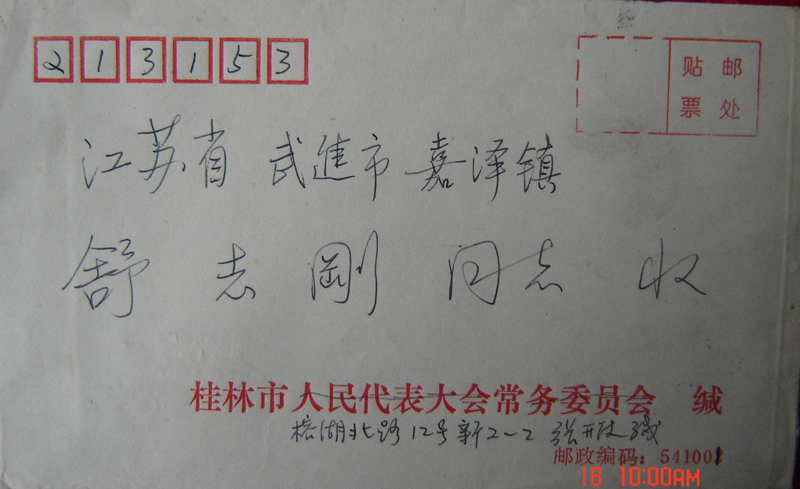 213153
贴邮
票处
江苏省 武進市 嘉泽镇
舒志剛 同志 收
桂林市人民代表大会常务委员会 缄
榕湖北路12号新2-2 张开政缄
邮政编码：541001
18 10:00AM